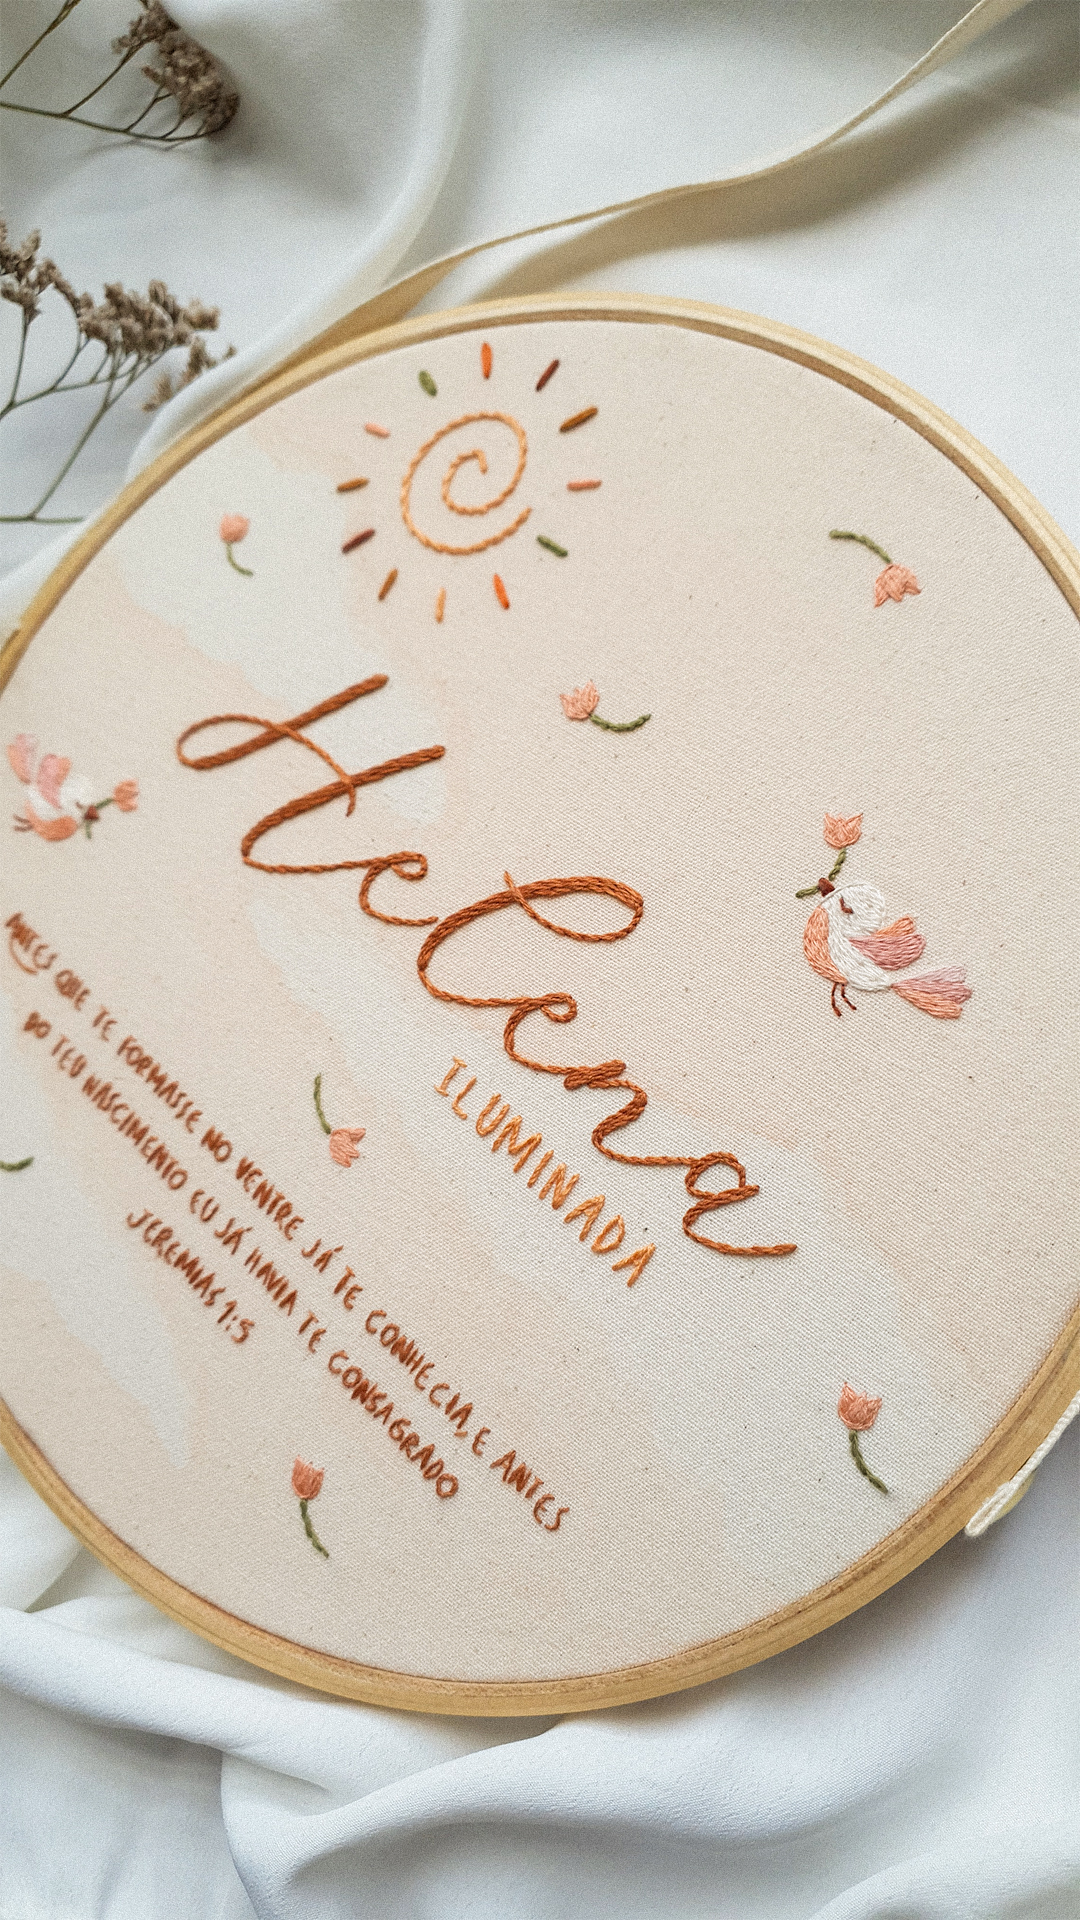 Helena
ILUMINADA
ANTES QUE TE FORMASSE NO VENTRE JÁ TE CONHECIA, E ANTES
DO TEU NASCIMENTO EU JÁ HAVIA TE CONSAGRADO
JEREMIAS 1:5